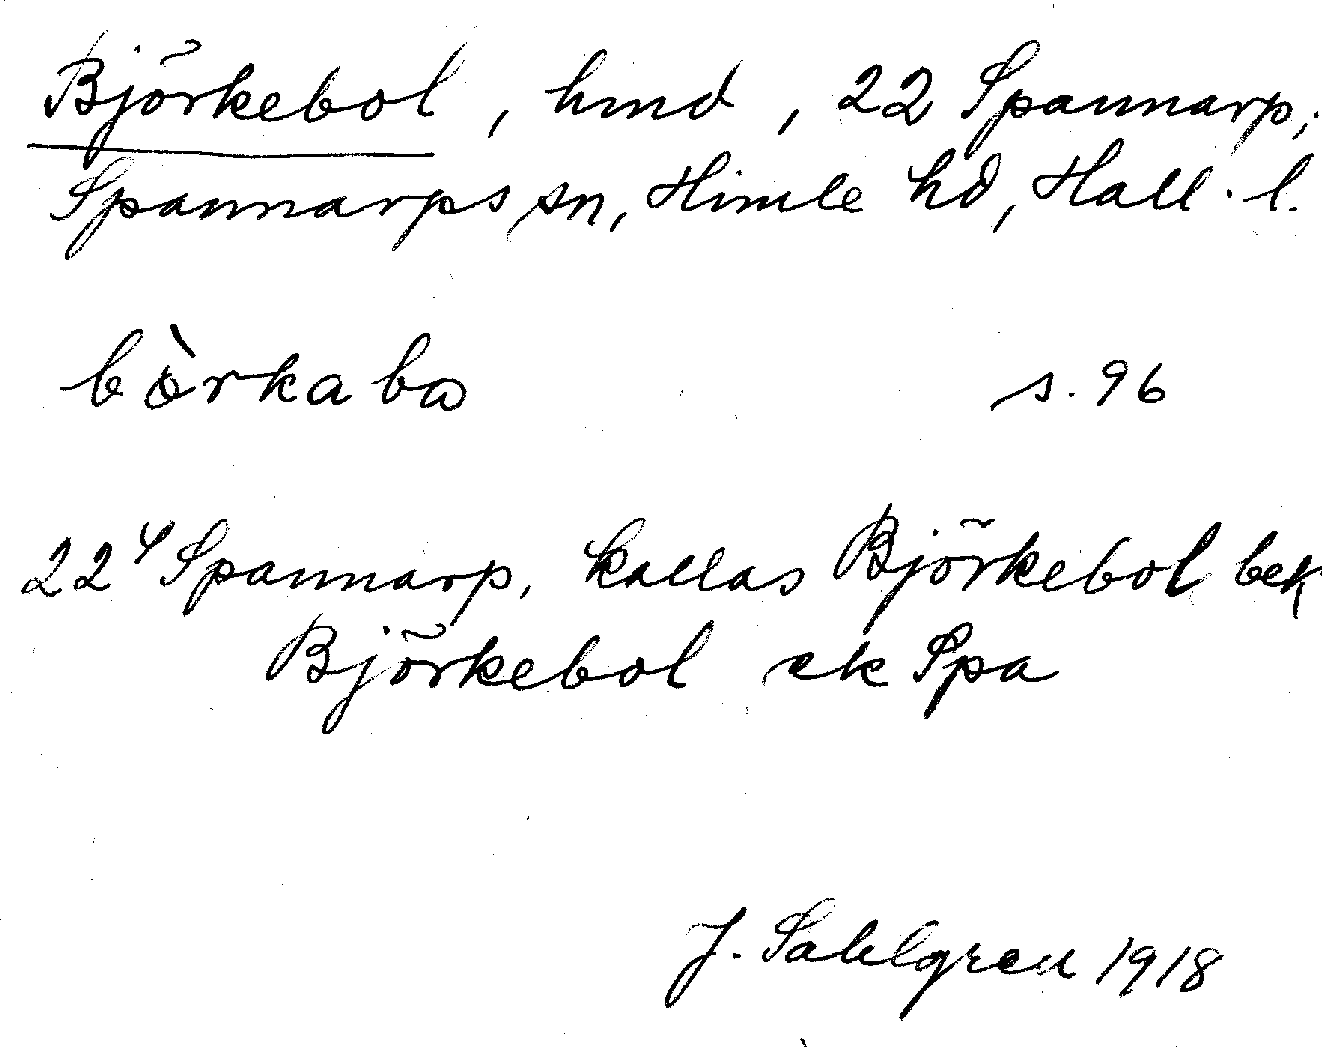 Björkebol, hmd, 22 Spannarp;
Spannarps sn, Himle hd, Hall. l.
bòrkabω s. 96
22⁴ Spannarp, kallas Björkebol bek
Björkebol ek Spa
J. Sahlgren 1918